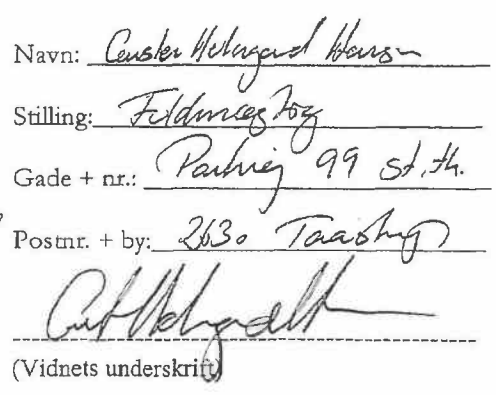 Navn: Carsten Helmgaard Hansen
Stilling:
Gade + nr.: Parkvej 99 st. th.
Postnr. + by: 2630 Taastrup
(Vidnets underskrift)